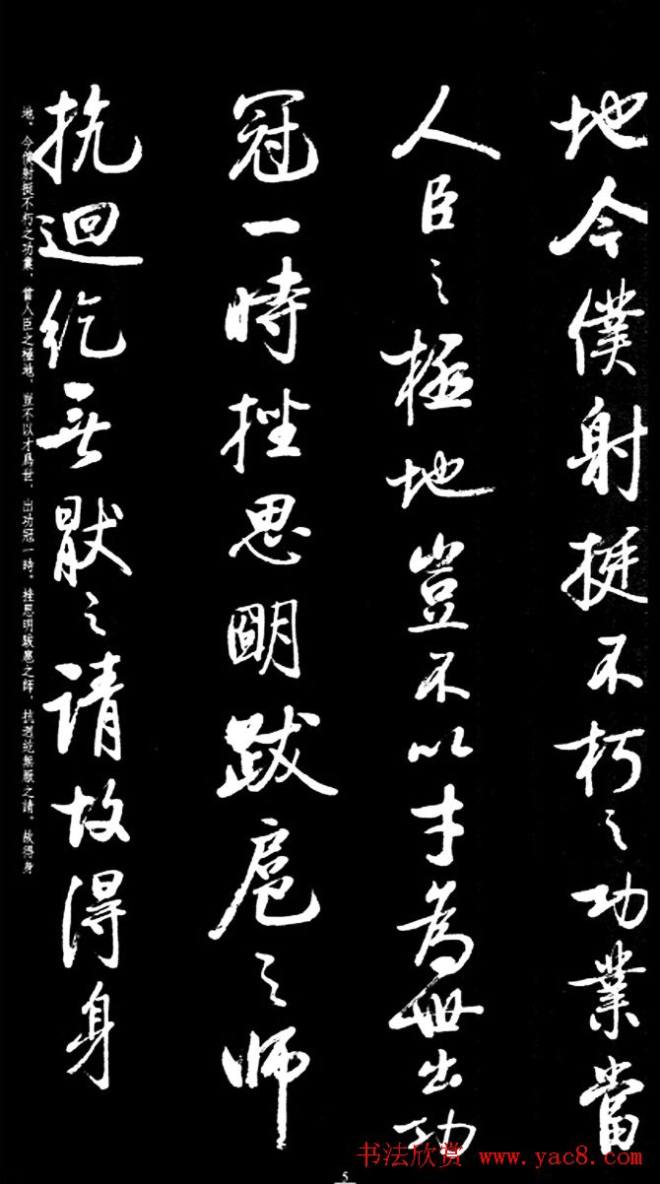 地今僕射挺不朽之功業當
人臣之極地豈不以才為世出功
冠一時挫思明跋扈之师
抗迴紇無猒之请故得身
地。今僕射挺不朽之功業,當人臣之極地,豈不以才爲世,出功冠一時。挫思明跋扈之師,抗迴紇無厭之請。故得身
5
书法欣赏 www.yac8.com